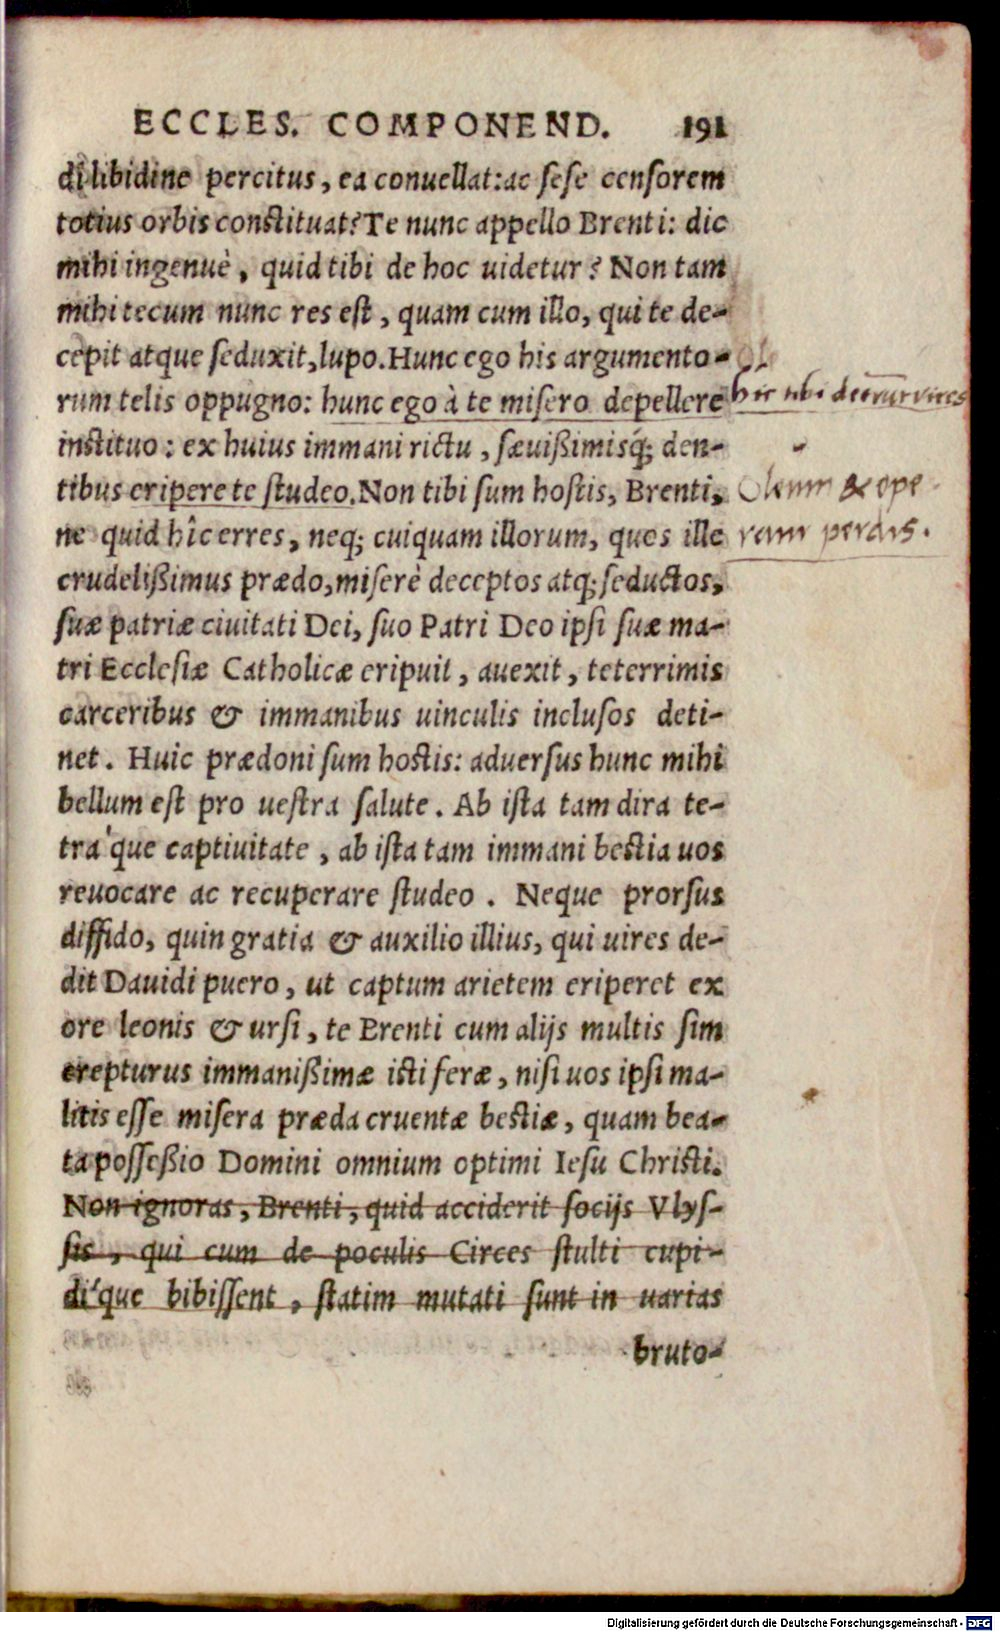 ECCLES. COMPONEND. 191
di libidine percitus, ea conuellat: ac sese censorem
totius orbis constituat? Te nunc appello Brenti: dic
mihi ingenuè, quid tibi de hoc uidetur? Non tam
mihi tecum nunc res est, quam cum illo, qui te de-
cepit atque seduxit, lupo. Hunc ego his argumento-
rum telis oppugno: hunc ego à te misero depellere
hic tibi deerunt vires
instituo: ex huius immani rictu, sæuißimisq́; den-
tibus eripere te studeo. Non tibi sum hostis, Brenti,
Oleum & ope
ne quid hîc erres, neq; cuiquam illorum, quos ille
ram perdis.
crudelißimus prædo, miserè deceptos atq; seductos,
suæ patriæ ciuitati Dei, suo Patri Deo ipsi suæ ma-
tri Ecclesiæ Catholicæ eripuit, auexit, teterrimis
carceribus & immanibus uinculis inclusos deti-
net. Huic prædoni sum hostis: aduersus hunc mihi
bellum est pro uestra salute. Ab ista tam dira te-
tra'que captiuitate, ab ista tam immani bestia uos
reuocare ac recuperare studeo. Neque prorsus
diffido, quin gratia & auxilio illius, qui uires de-
dit Dauidi puero, ut captum arietem eriperet ex
ore leonis & ursi, te Brenti cum alijs multis sim
erepturus immanißimæ isti feræ, nisi uos ipsi ma-
litis esse misera præda cruentæ bestiæ, quam bea-
ta posseßio Domini omnium optimi Iesu Christi.
Non ignoras, Brenti, quid acciderit socijs Vlys-
sis, qui cum de poculis Circes stulti cupi-
di'que bibissent, statim mutati sunt in uarias
bruto-
Digitalisierung gefördert durch die Deutsche Forschungsgemeinschaft - DFG